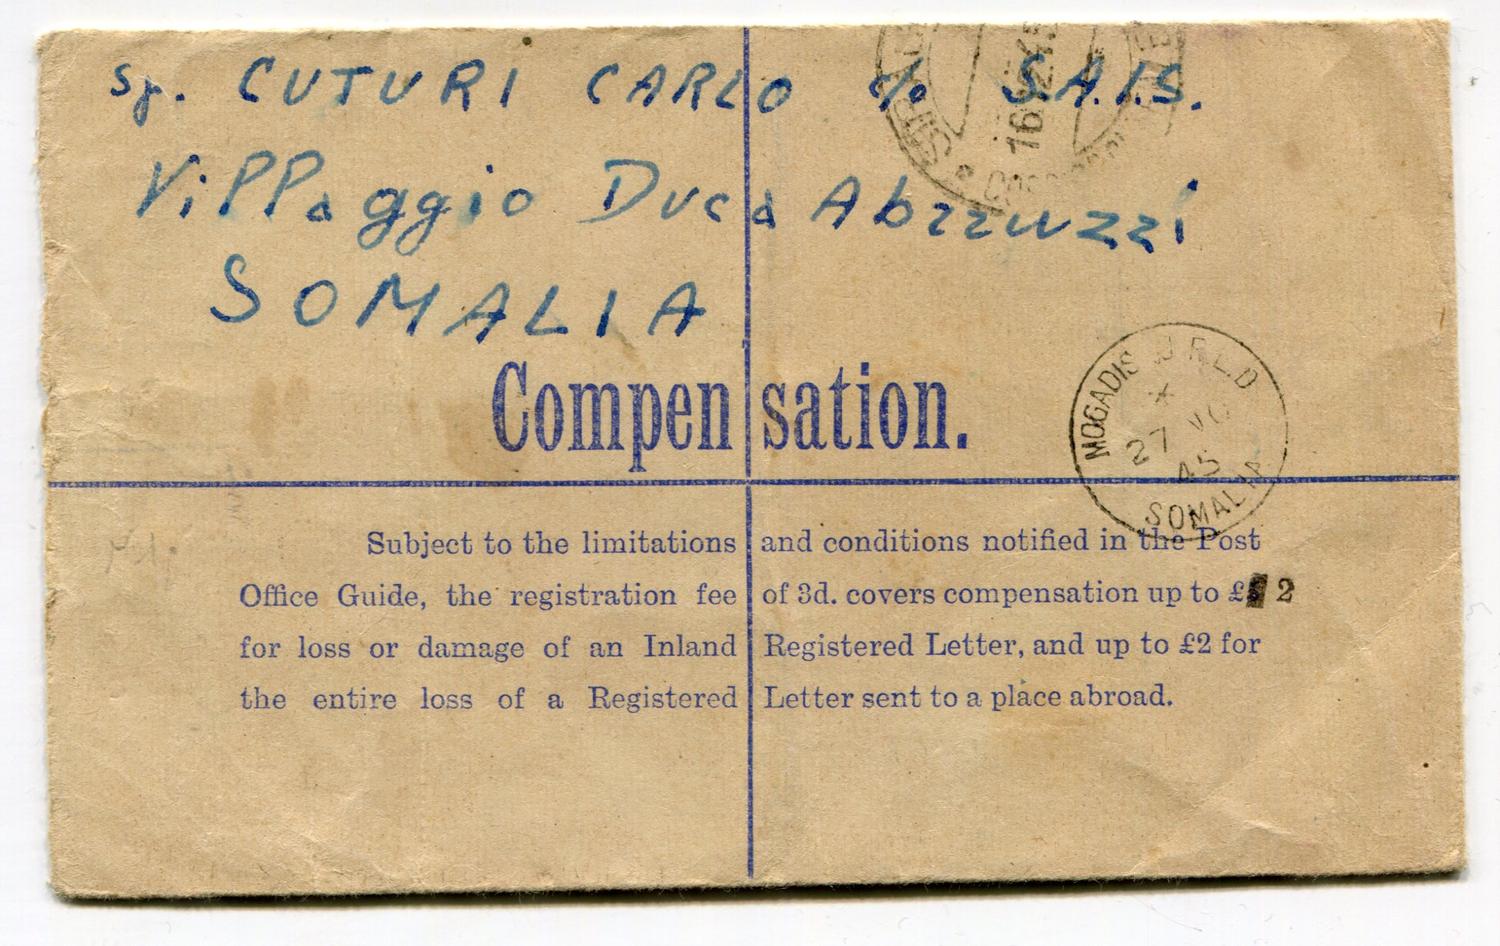 Sp. CUTURI CARLO c/o S.A.I.S.
Villaggio Duca Abruzzi
SOMALIA
16.12.45
Compensation.
MOGADIS
R.L.D
27 NO
45
SOMALIA
Subject to the limitations and conditions notified in the Post
Office Guide, the registration fee of 3d. covers compensation up to £ 2
for loss or damage of an Inland Registered Letter, and up to £2 for
the entire loss of a Registered Letter sent to a place abroad.